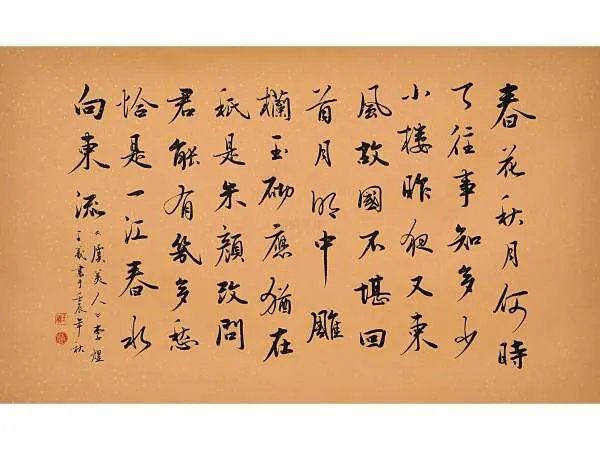 春花秋月何時
了往事知多少
小樓昨夜又東
風故國不堪回
首月明中雕
欄玉砌應猶在
祇是朱顏改問
君能有幾多愁
恰是一江春水
向東流
《虞美人》李煜
書于壬辰年秋